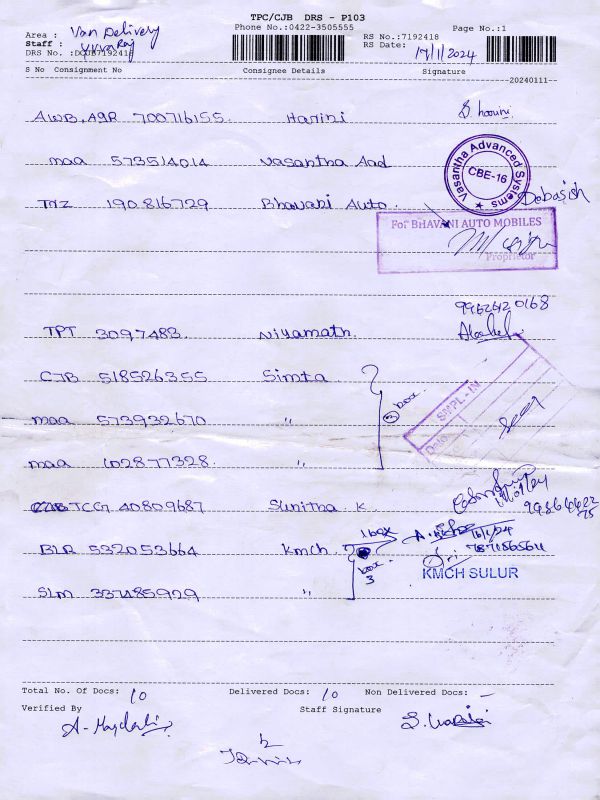 TPC/CJB DRS - P103
Phone No.:0422-3505555
Page No.:1
Area : Van Delivery
Staff : Yuvaraj
RS No.:7192418
DRS No. :DCJB7192418
RS Date: 17/1/2024
S No Consignment No Consignee Details Signature
20240111
AWB, AGR 700716155 Harini S. harini
maa 573514014 Vasantha Aad
Vasantha Advanced Systems
CBE-16
TNZ 190816729 Bhavani Auto. Debasish
For BHAVANI AUTO MOBILES
Proprietor
9962620168
TPT 3097483 Niyamath.
CJB 518526355 Simta
maa 573932670 〃 3 box
SMPL-IN
Date
maa 102877328. 〃
TCG 40809687 Sunitha K
1 box
BLR 532053664 kmch
16/1/24
7871565611
KMCH SULUR
box 3
SLM 337485929 〃
Total No. Of Docs: 10 Delivered Docs: 10 Non Delivered Docs: -
Verified By Staff Signature